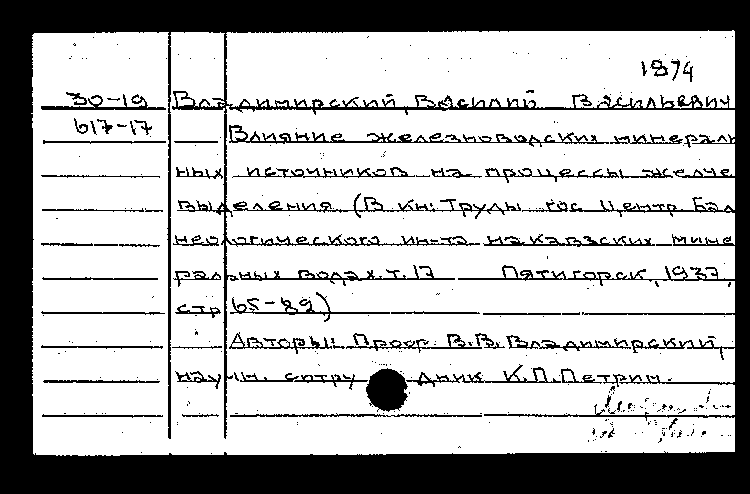 1874
30-19 Владимирский, Василий Васильевич
617-17 Влияние железноводских минераль
ных источников на процессы желче
выделения (В кн: Труды гос Центр Бал
неологического ин-та на кавзских мине
ральных водах. т. 17 Пятигорск, 1937,
стр 65-82)
Авторы: Проф. В.В. Владимирский,
научн. сотрудник К.П. Петрин.